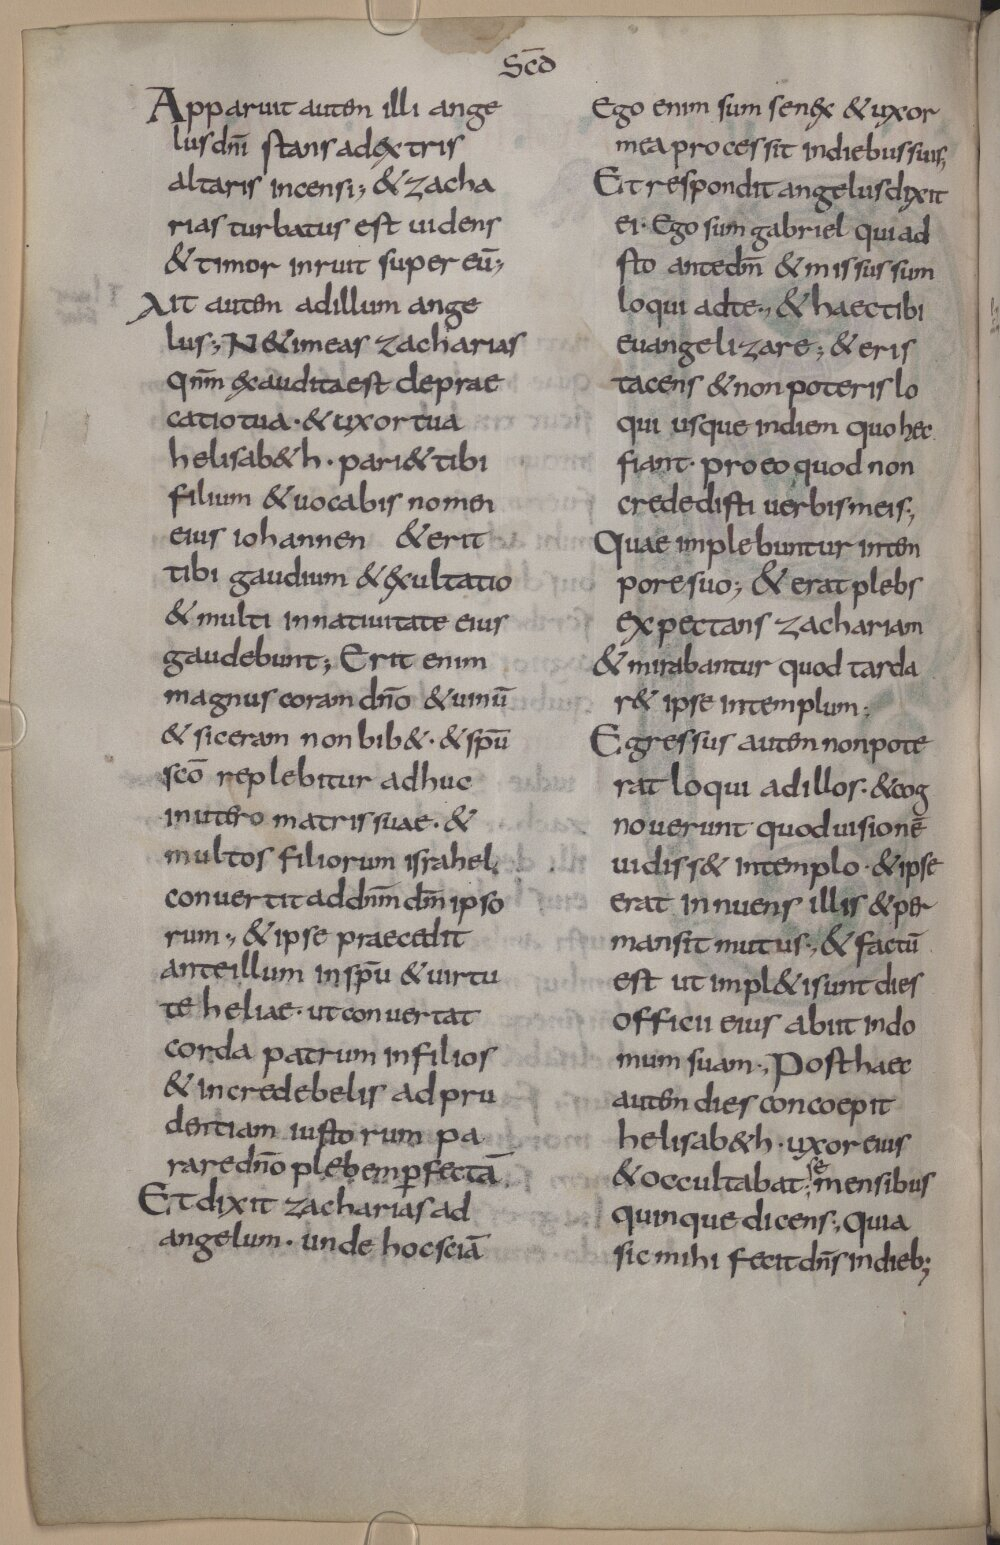 Scd̄
Apparuit autem illi ange
lus dn̄i stans adextris
altaris incensi; & zacha
rias turbatus est uidens
& timor inruit super eū;
Ait autem adillum ange
lus; N&imeas zacharias
qnm̄ exaudita est deprae
catio tua · & uxor tua
helisab&h · pari& tibi
filium & uocabis nomen
eius iohannen & erit
tibi gaudium & exultatio
& multi innatiuitate eius
gaudebunt; Erit enim
magnus coram dn̄o & uinū
& siceram non bib& · & spū
scō replebitur adhuc
inutero matris suae · &
multos filiorum israhel
conuertit addn̄m dm̄ ipso
rum; & ipse praecedit
anteillum inspū & uirtu
te heliae · ut conuertat
corda patrum infilios
& incredebelis adpru
dentiam iustorum pa
rare dn̄o plebem perfectā
Et dixit zacharias ad
angelum · unde hoc sciā
Ego enim sum senex & uxor
mea processit indiebus suis;
Et respondit angelus dixit
ei · Ego sum gabriel qui ad
sto antedm̄ & missus sum
loqui adte; & haec tibi
euangelizare; & eris
tacens & non poteris lo
qui usque indiem quo hęc
fiant · pro eo quod non
crededisti uerbis meis;
Quae implebuntur intem
pore suo; & erat plebs
expectans zachariam
& mirabantur quod tarda
r& ipse intemplum;
Egressus autem non pote
rat loqui adillos · & cog
nouerunt quod uisionē
uidiss& intemplo · & ipse
erat innuens illis & per
mansit mutus; & factū
est ut impl& i sunt dies
officii eius abiit indo
mum suam; Post haec
autem dies concoepit
helisab&h · uxor eius
& occultabat; se mensibus
quinque dicens; Quia
sic mihi fecit dn̄s indieb;